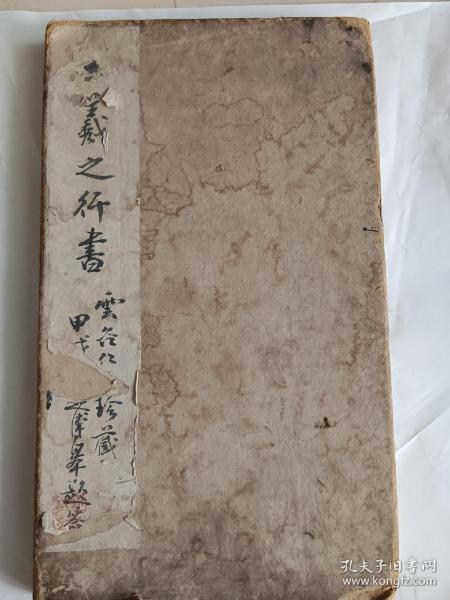 羲之行書
雲谷仁 珍藏
甲戈
題簽
孔夫子旧书网
www.kongfz.com